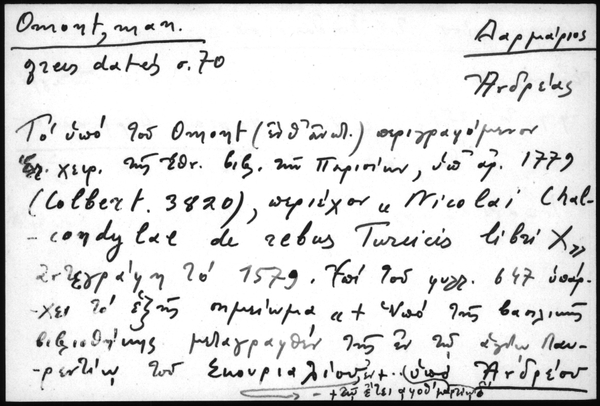 Omont, man.
grecs datés σ. 70
Δαρμάριος
Ἀνδρέας
Τό ὑπό τοῦ Omont (ἔνθ' ἀνωτ.) περιγραφόμενον
ἑλ. χειρ. τῆς Ἐθν. βιβ. τῶν Παρισίων, ὑπ' ἀρ. 1779
(Colbert. 3820), περιέχον « Nicolai Chal-
-condylae de rebus Turcicis libri X»
ἀντεγράφη τό 1579. Ἐπί τοῦ φυλλ. 647 ὑπάρ-
-χει τό ἑξῆς σημείωμα «+ Ὑπό τῆς βασιλικῆς
βιβλιοθήκης μεταγραφθέν τῆς ἐν τῷ ἁγίῳ Λαυ-
-ρεντίῳ τοῦ Σκουριαλίου +. ὑπό Ἀνδρέου
- + τῷ ἔτει αφοθ'